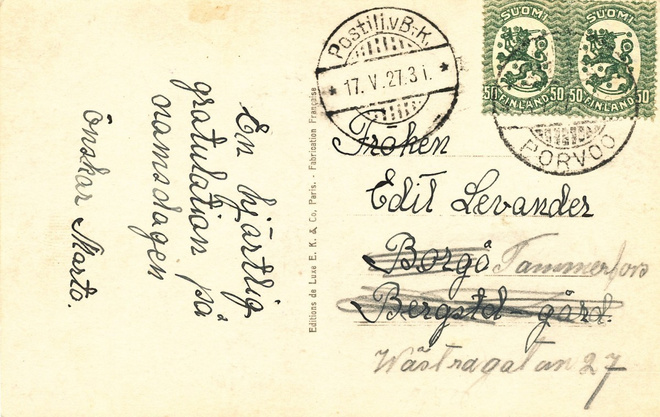 En hjärtlig
gratulation på
namsdagen
Önskar Marta.
Editions de Luxe E. K. & Co, Paris. - Fabrication Française
Postilj.v B.-K.
* 17. V. 27. 3 i. *
SUOMI SUOMI
50 FINLAND 50 50 FINLAND 50
PORVOO
Fröken
Edit Levander
Borgå Tammerfors
Bergst:d- gård.
Wästragatan 27